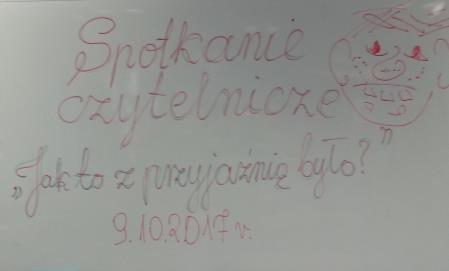 Spotkanie
czytelnicze
„Jak to z przyjaźnią było?”
9.10.2017 r.